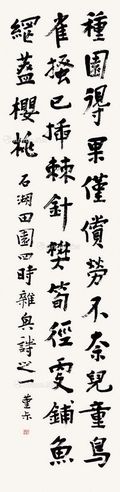 種園得果僅償勞不奈兒童鳥
雀搔已插棘針樊筍徑更鋪魚
網蓋櫻桃 石湖田園四時雜興詩之一 董